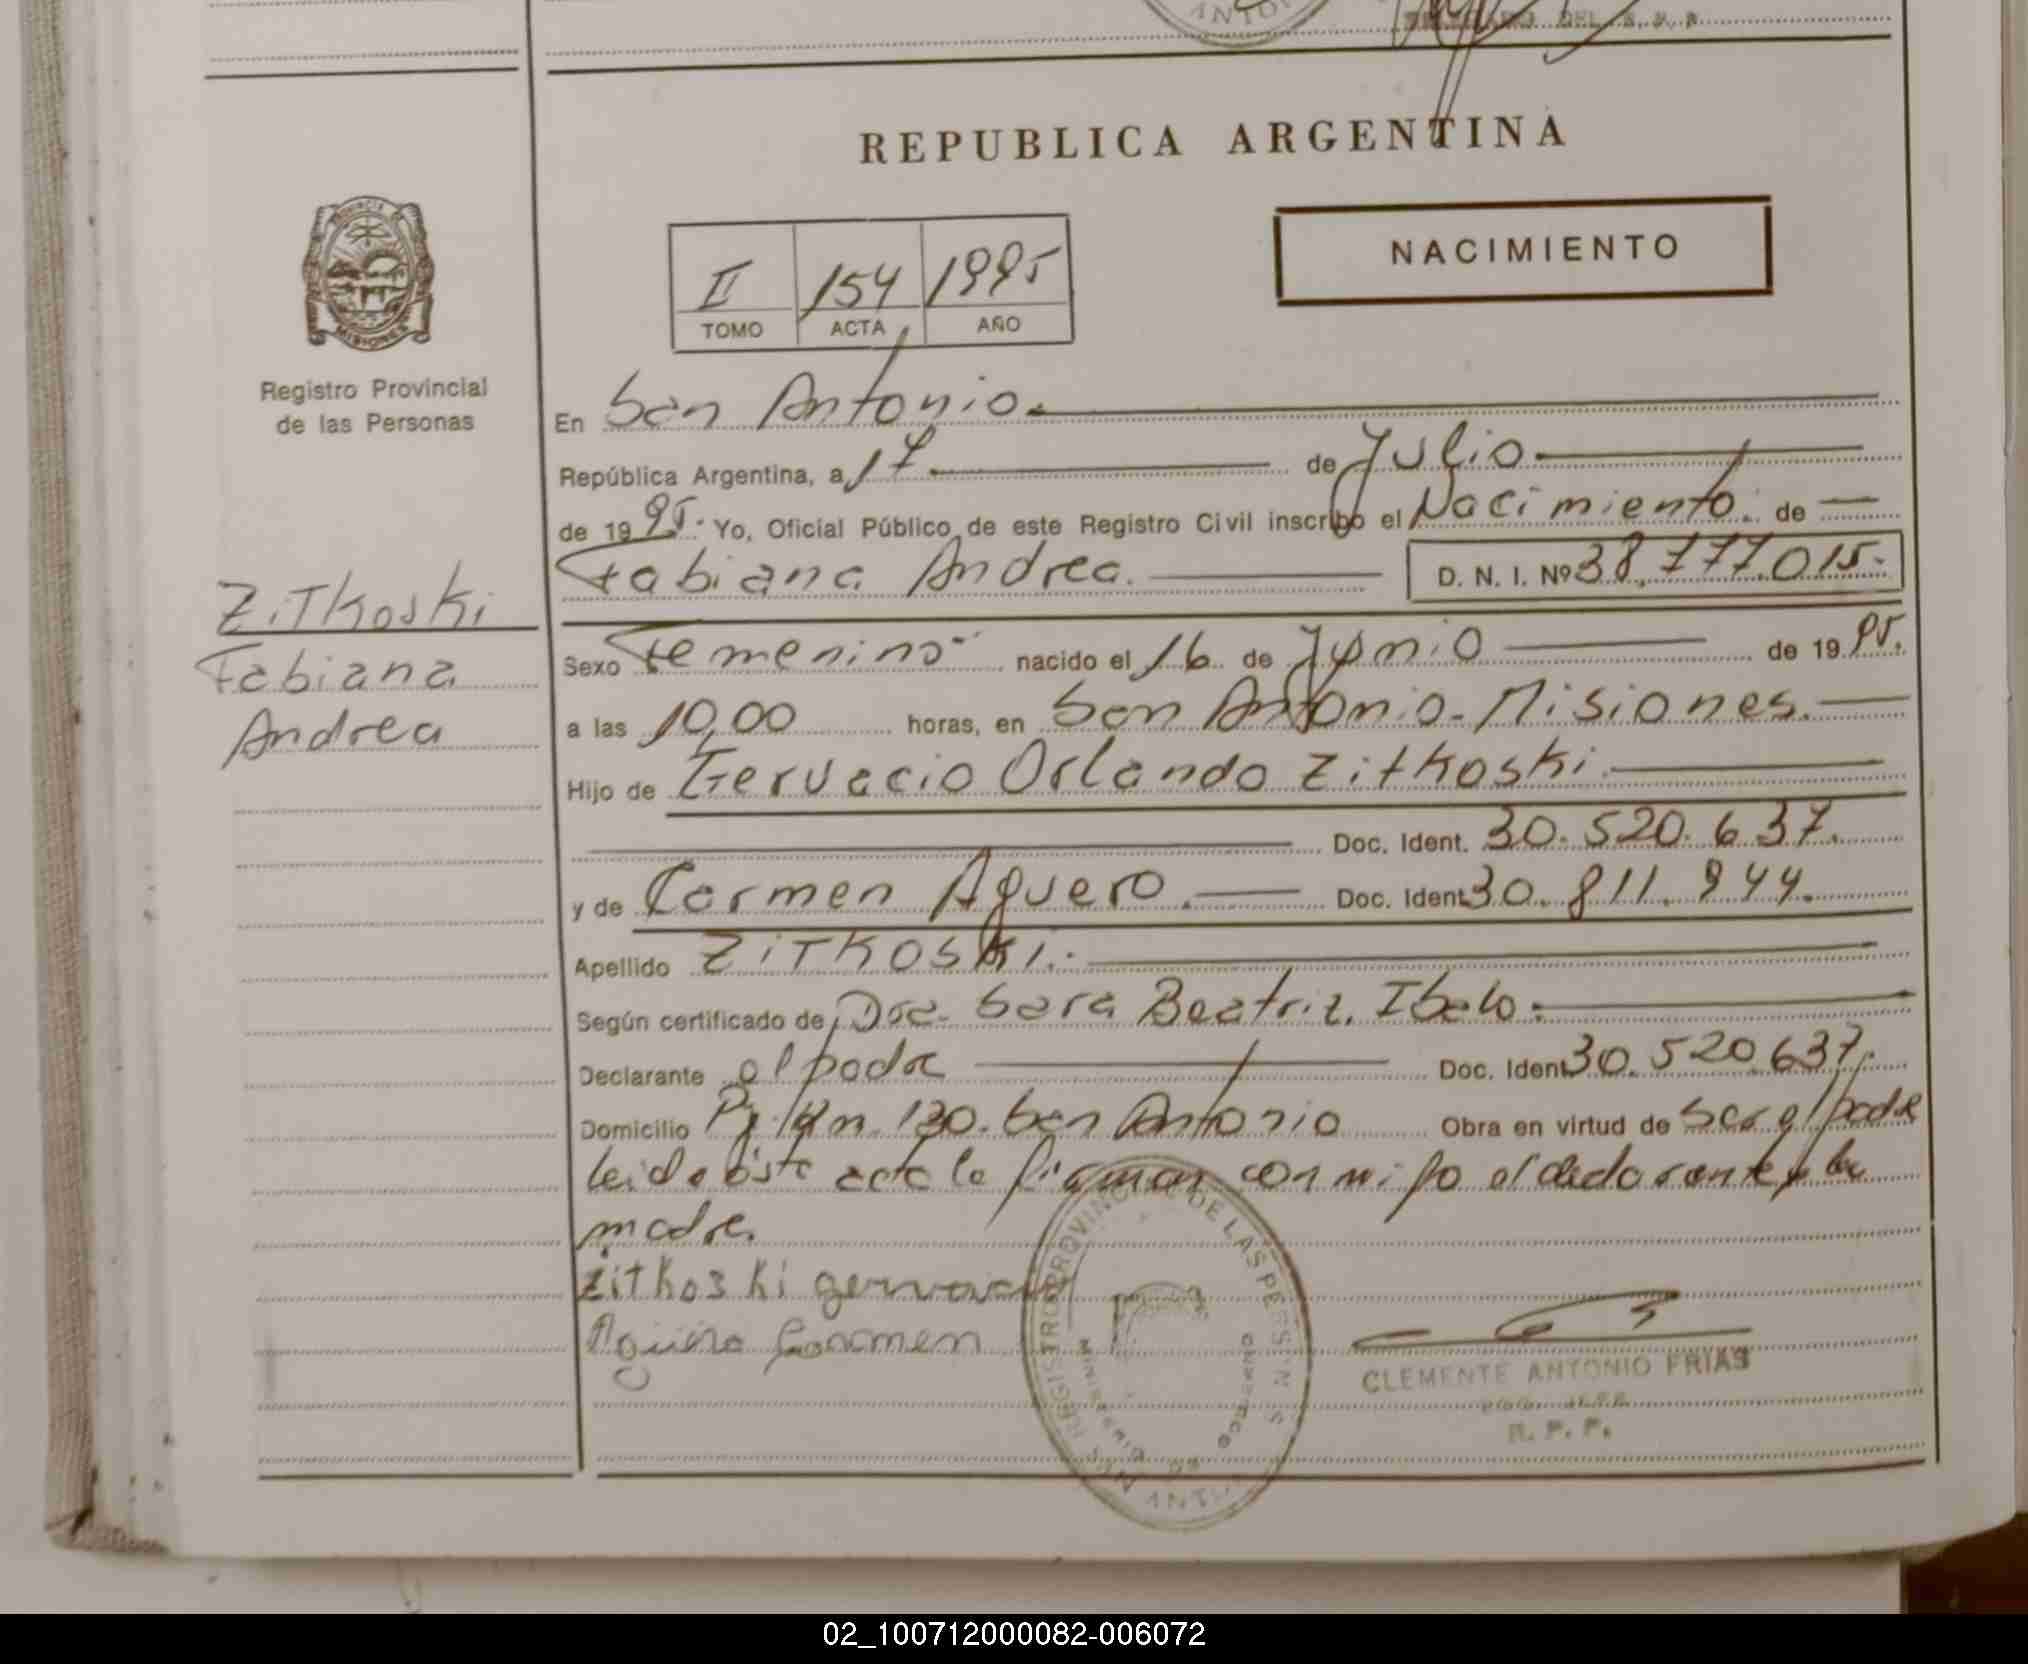 ANTO
DELEGADO DEL R.P.P.
REPUBLICA ARGENTINA
PROVINCIA DE
MISIONES
II 154 1995
TOMO ACTA AÑO
NACIMIENTO
Registro Provincial
de las Personas
En San Antonio.
República Argentina, a 17 de Julio
de 1995. Yo, Oficial Público de este Registro Civil inscribo el Nacimiento. de
Fabiana Andrea. D. N. I. Nº 38.777.015.
Zitkoski
Fabiana
Andrea
Sexo Femenino nacido el 16 de Junio de 1995.
a las 10,00 horas, en San Antonio-Misiones.
Hijo de Gervacio Orlando Zitkoski.
Doc. Ident. 30.520.637.
y de Carmen Aguero. Doc. Ident. 30.811.944.
Apellido Zitkoski.
Según certificado de Dra. Sara Beatriz. Ibalo.
Declarante el padre Doc. Ident. 30.520.637.
Domicilio Pj. Km. 130. San Antonio Obra en virtud de ser el padre
leida ésta acta la firman conmigo el declarante y la
madre.
Zitkoski gervacio
Agüero Carmen
REGISTRO PROVINCIAL DE LAS PERSONAS
MINISTERIO DE GOBIERNO
CLEMENTE ANTONIO FRIAS
R. P. P.
02_100712000082-006072